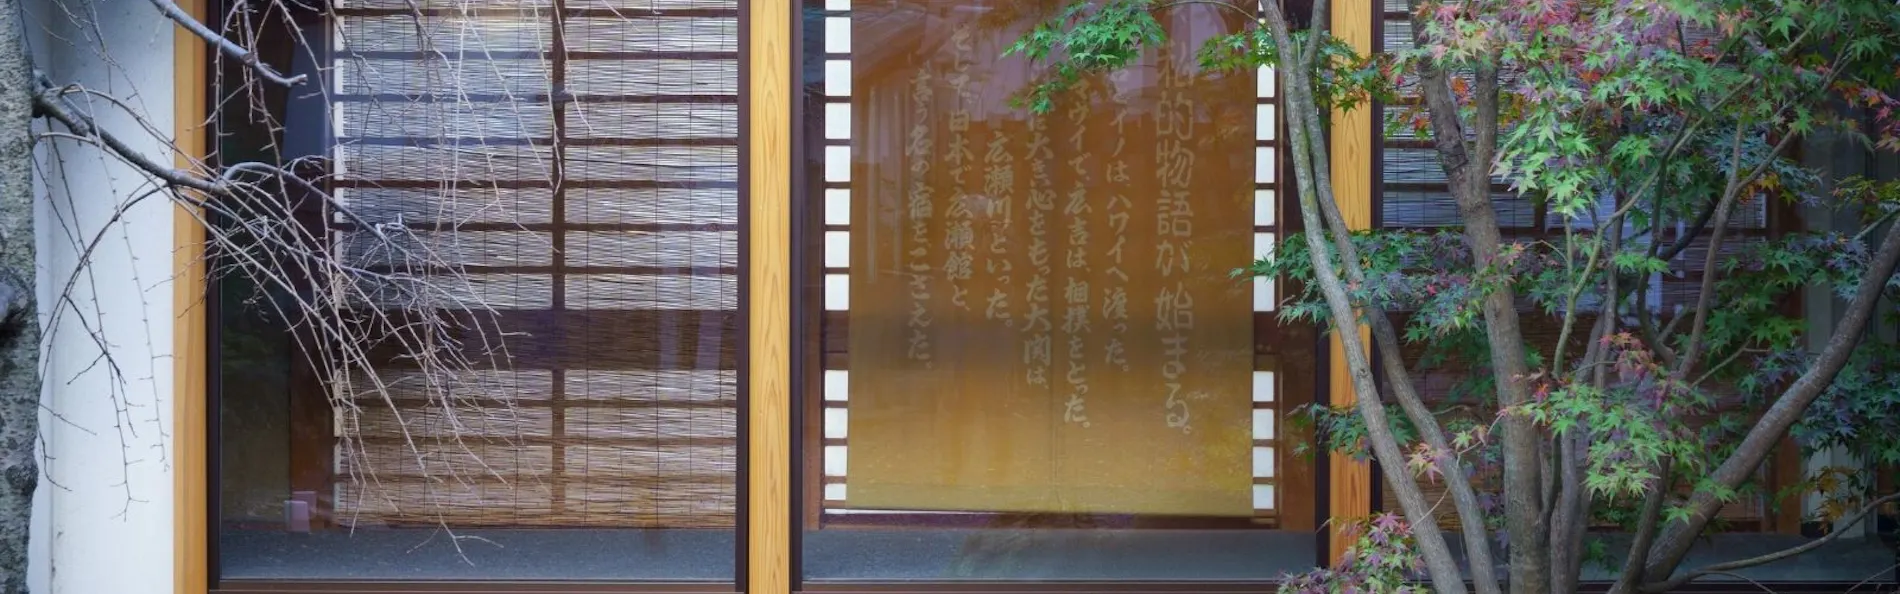 私的物語が始まる。
イノは、ハワイへ渡った。
マウイで、広吉は、相撲をとった。
大き心をもった大関は、
広瀬川といった。
そして、日本で広瀬館と、
名の宿をこさえた。